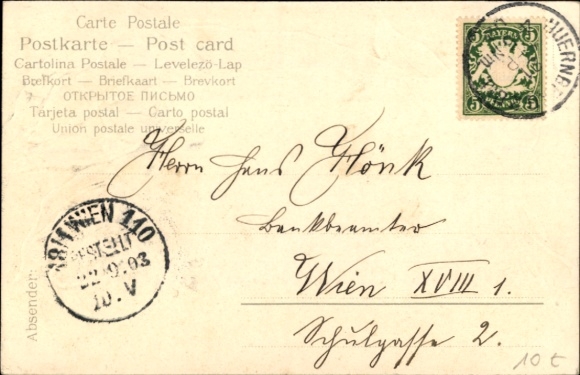 Carte Postale
Postkarte — Post card
Cartolina Postale — Levelezö-Lap
Brefkort — Briefkaart — Brevkort
ОТКРЫТОЕ ПИСЬМО
Tarjeta postal — Carto postal
Union postale universelle
BAYERN
5 5
5 5
NUERNB
Herrn Hans Hönk
Bankbeamter
Wien XVIII 1.
Schulgasse 2.
18/1 WIEN 110
BESTELLT
22.9.03
10.V
Absender:
10 €